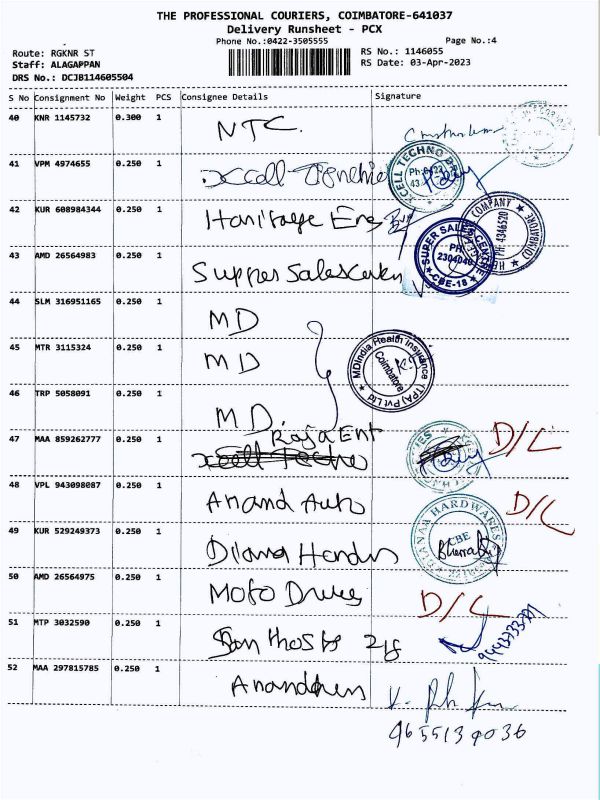 THE PROFESSIONAL COURIERS, COIMBATORE-641037
Delivery Runsheet - PCX
Phone No.:0422-3505555 Page No.:4
Route: RGKNR ST RS No.: 1146055
Staff: ALAGAPPAN RS Date: 03-Apr-2023
DRS No.: DCJB114605504
S No Consignment No Weight PCS Consignee Details Signature
40 KNR 1145732 0.300 1 NTC.
41 VPM 4974655 0.250 1 Xcell
XCELL TECHNO
42 KUR 608984344 0.250 1 Haritage Eng
COMPANY
PH: 4346520
43 AMD 26564983 0.250 1 Supper Sales
SUPER SALES CENTRE
PH: 2304040
CBE-18
44 SLM 316951165 0.250 1 MD
45 MTR 3115324 0.250 1 MD
MDIndia Health Insurance (TPA) Pvt Ltd
Coimbatore
46 TRP 5058091 0.250 1 MD.
47 MAA 859262777 0.250 1 Raja Ent D/L
48 VPL 943098087 0.250 1 Anand Auto D/L
49 KUR 529249373 0.250 1 Diana
HARDWARES
CBE
50 AMD 26564975 0.250 1 Moto D/L
51 MTP 3032590 0.250 1
52 MAA 297815785 0.250 1
9655139036